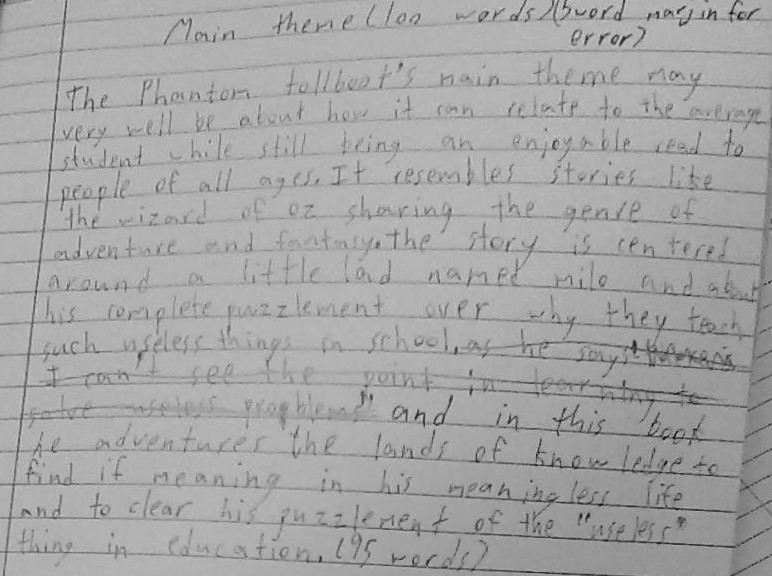 Main theme (100 words) (5 word margin for
error)
The Phantom tollboot's main theme may
very well be about how it can relate to the average
student while still being an enjoyable read to
people of all ages. It resembles stories like
the wizard of oz sharing the genre of
adventure and fantasy. the story is centered
around a little lad named milo and about
his complete puzzlement over why they teach
such useless things in school, as he says
I can't see the point in learning to
solve useless progblems" and in this book
he adventures the lands of knowledge to
find if meaning in his meaningless life
and to clear his puzzlement of the "useless"
thing in education. (95 words)